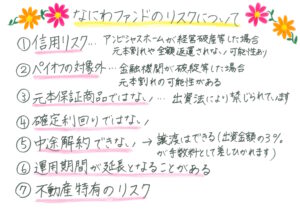 なにわファンドのリスクについて
①信用リスク… アンビシャスホームが経営破産等した場合
元本割れや全額返還されない可能性あり
②ペイオフの対象外… 金融機関が破綻等した場合
元本割れの可能性がある
③元本保証商品ではない… 出資法により禁じられています
④確定利回りではない
⑤中途解約できない → 譲渡はできる(出資金額の3%
が手数料として差しひかれます)
⑥運用期間が延長となることがある
⑦不動産特有のリスク